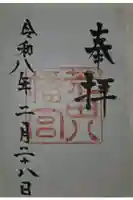 奉拝
令和八年二月二十八日